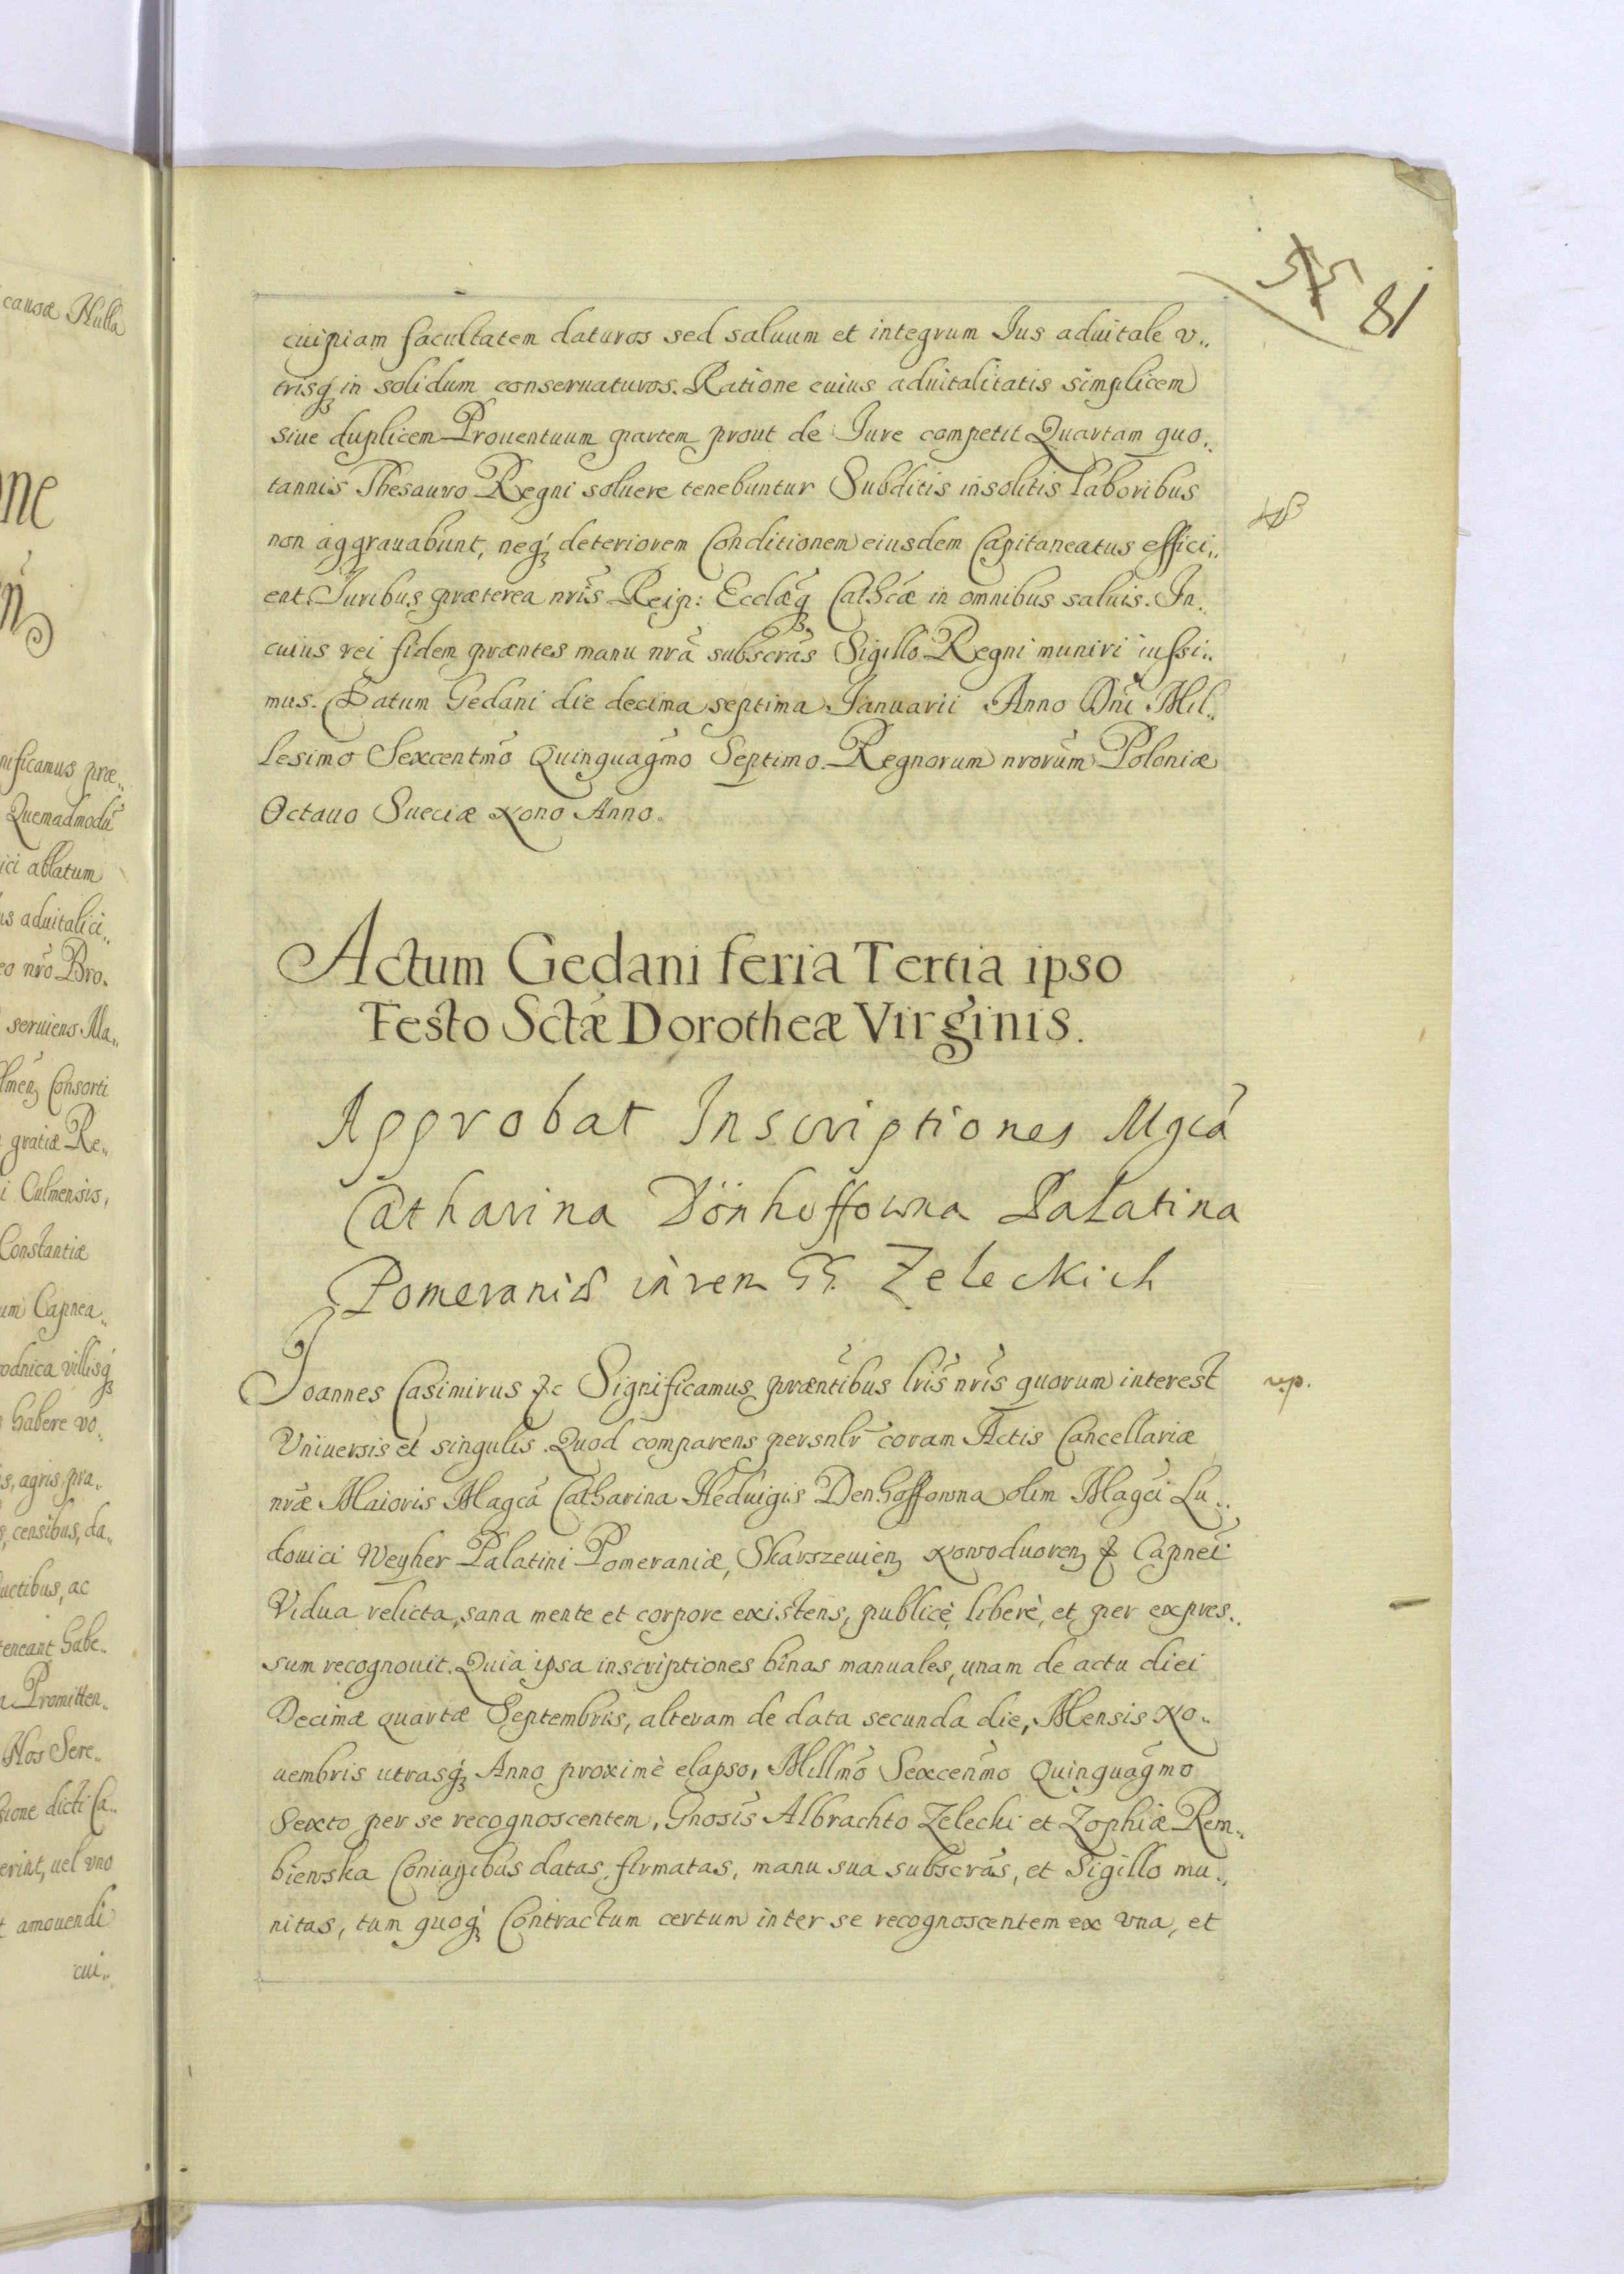 causæ Nulla
one
nificamus præ„
Quemadmodũ
ici ablatum
us aduitalici„
eo nr̃o Bro„
seruiens Ma„
Consorti
gratiæ Re„
i Culmensis,
Constantiæ
um Capnea„
odnica villisq́ꝫ
habere vo„
s, agris, pra„
s, censibus, da„
uctibus, ac
teneant habe„
Promitten„
Nos Sere„
sione dicti Ca„
erint, uel vno
t amouendi
cui„
575 81
cuipiam facultatem daturos sed saluum et integrum Ius aduitale v„
trisqꝫ in solidum conseruaturos. Ratione cuius aduitalitatis simplicem
siue duplicem Prouentuum partem prout de Iure competit Quartam quo„
tannis Thesauro Regni soluere tenebuntur Subditis insolitis laboribus
non aggrauabunt, neq́ꝫ deteriorem Conditionem eiusdem Capitaneatus effici„
ent. Iuribus præterea nr̃is Reip: Ecclæ̃qꝫ Cathcæ̃ in omnibus saluis. In„
cuius rei fidem præntes manu nrã subscrãs Sigillo Regni muniri iussi„
mus. Datum Gedani die decima septima Ianuarii Anno Dnĩ Mil„
lesimo Sexcentmõ Quinquagmõ Septimo. Regnorum nrorũm Poloniæ
Octauo Sueciæ Nono Anno.
Actum Gedani feria Tertia ipso
Festo Sctæ̃ Dorotheæ Virginis.
Approbat Inscriptiones Mgcã
Catharina Dönhoffowna Palatina
Pomeraniæ in rem GG. Zeleckich
Ioannes Casimirus ꝛc Significamus præntĩbus lrĩs nrĩs quorum interest
rep.
Vniuersis et singulis. Quod comparens persnlr̃ coram Actis Cancellariæ
nrǣ Maioris Magcã Catharina Heduigis Denhoffowna olim Magcĩ Lu„
douici Weyher Palatini Pomeraniæ, Skarszeuienꝫ Nowoduorenꝫ ꝛ Capneĩ
Vidua relicta, sana mente et corpore existens, publicè, liberè, et per expres„
sum recognouit. Quia ipsa inscriptiones binas manuales, unam de actu diei
Decimæ quartæ Septembris, alteram de data secunda die, Mensis No„
uembris utrasq́ꝫ Anno proximè elapso, Millmõ Sexcenm̃o Quinquagmõ
Sexto per se recognoscentem, Gnosĩs Albrachto Zelecki et Zophiæ Rem„
biewska Coniugibus datas, firmatas, manu sua subscrãs, et Sigillo mu„
nitas, tum quoq́ꝫ Contractum certum inter se recognoscentem ex vna, et